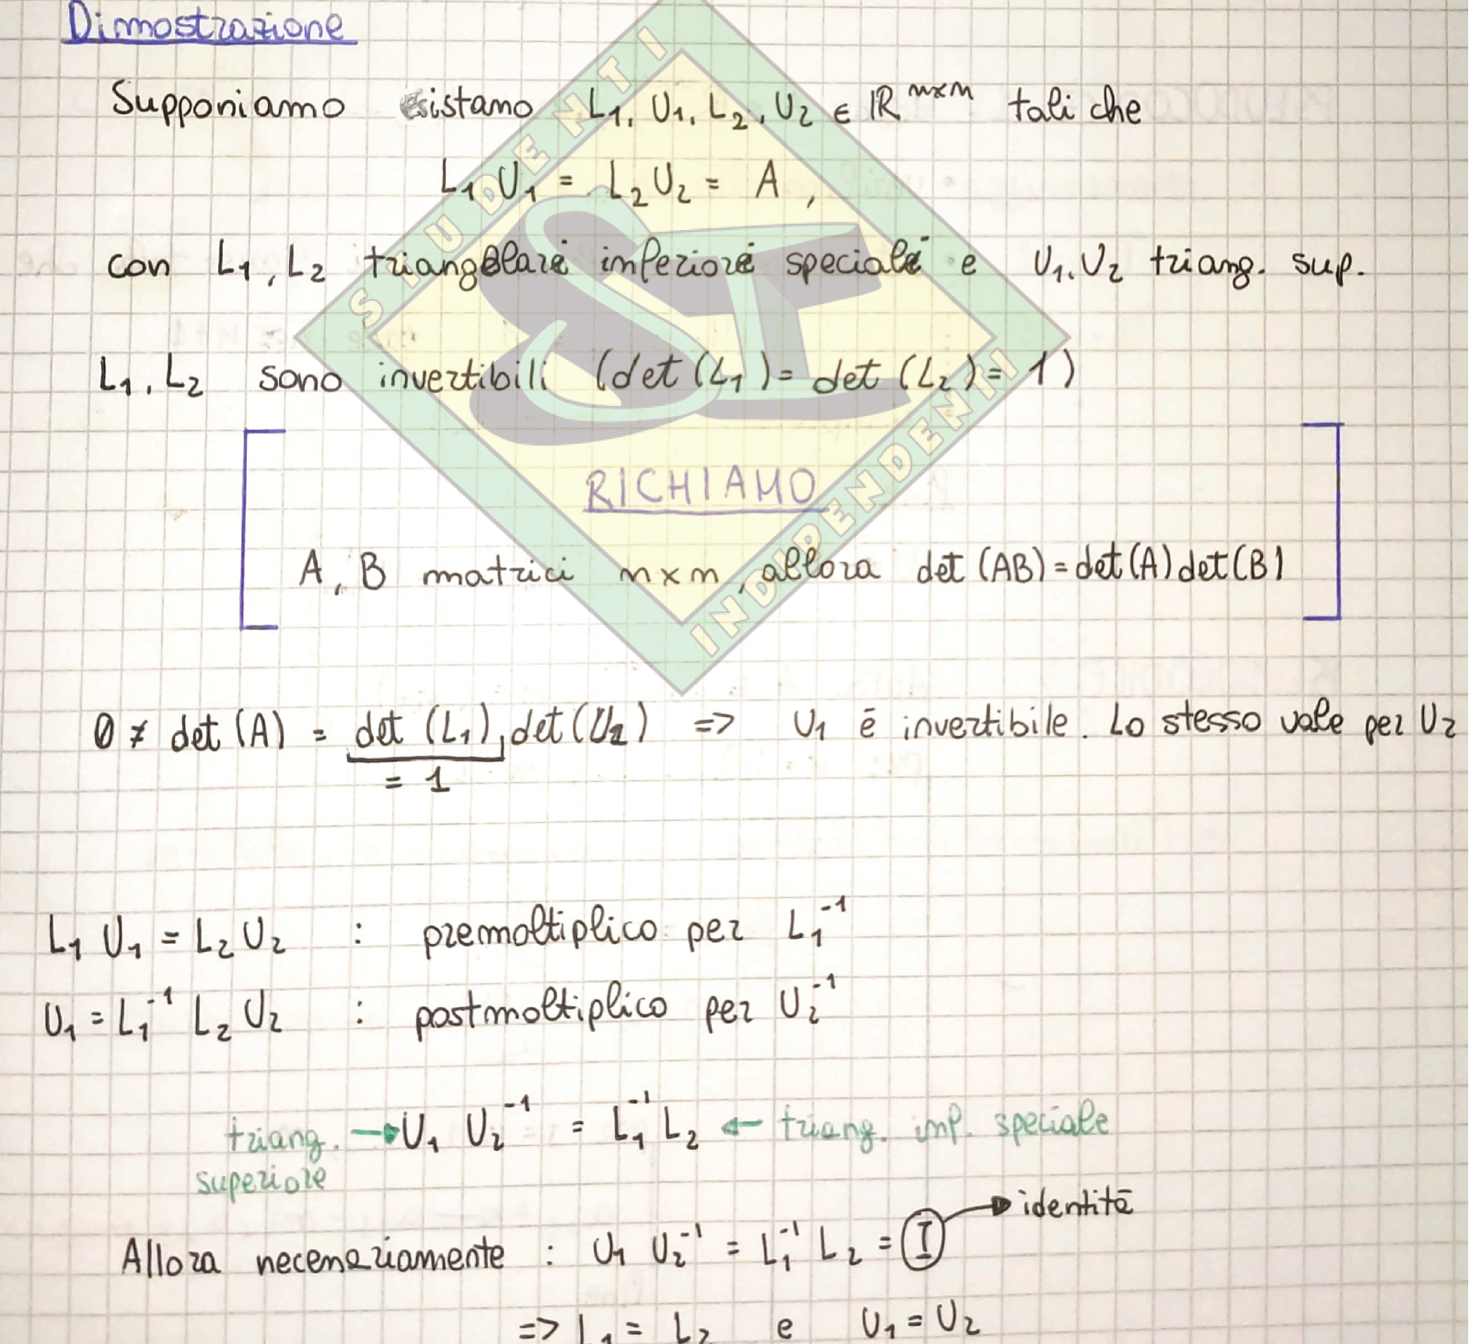 Dimostrazione
Supponiamo esistano L₁, U₁, L₂, U₂ ∈ ℝⁿˣⁿ tali che
L₁ U₁ = L₂ U₂ = A ,
con L₁, L₂ triangolari inferiori speciali e U₁, U₂ triang. sup.
L₁, L₂ sono invertibili (det (L₁) = det (L₂) = 1)
RICHIAMO
A, B matrici n×n, allora det (AB) = det (A) det (B)
0 ≠ det (A) = det (L₁) det (U₁) => U₁ è invertibile. Lo stesso vale per U₂
= 1
L₁ U₁ = L₂ U₂ : premoltiplico per L₁⁻¹
U₁ = L₁⁻¹ L₂ U₂ : postmoltiplico per U₂⁻¹
triang. superiore → U₁ U₂⁻¹ = L₁⁻¹ L₂ ← triang. inf. speciale
Allora necessariamente : U₁ U₂⁻¹ = L₁⁻¹ L₂ = I → identità
=> L₁ = L₂ e U₁ = U₂
STUDENTI
INDIPENDENTI
SI